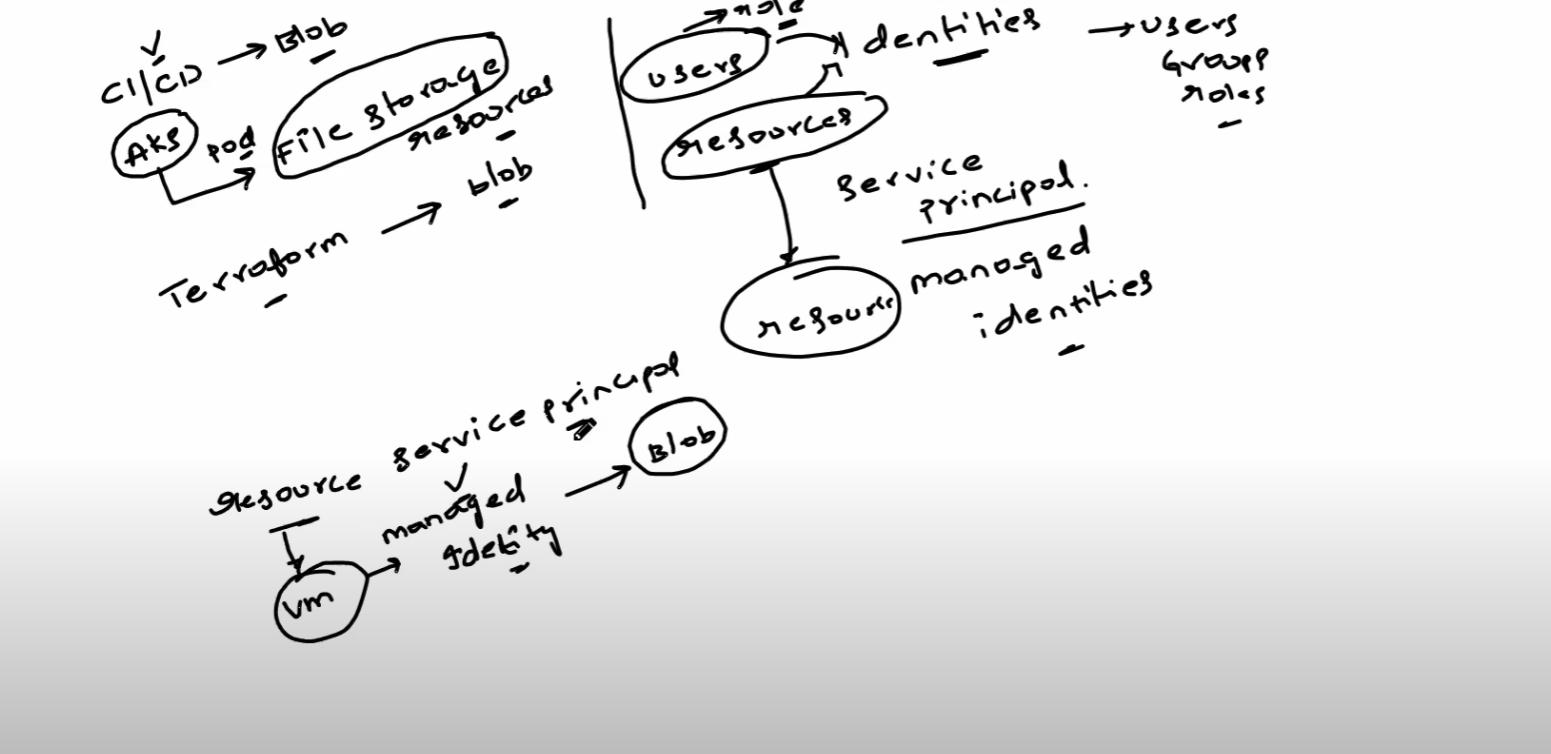 CI/CD → Blob
AKS
pod
File storage
resources
Terraform → blob
role
users
identities → users
Groups
roles
resources
service
principal.
resource
managed
identities
Resource service principal
managed
Idetity
Blob
vm